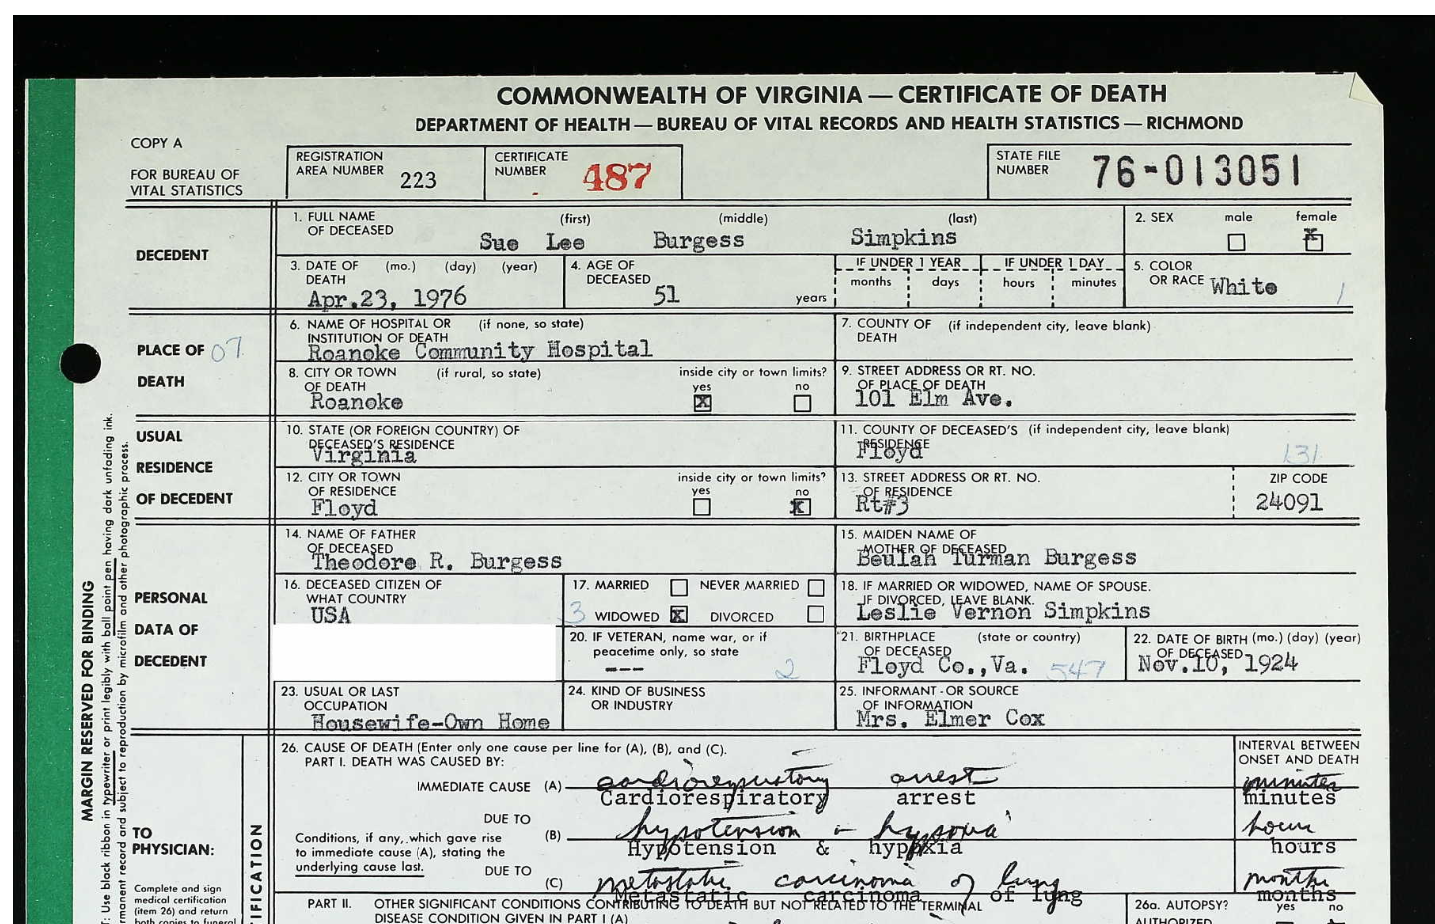 COMMONWEALTH OF VIRGINIA — CERTIFICATE OF DEATH
DEPARTMENT OF HEALTH — BUREAU OF VITAL RECORDS AND HEALTH STATISTICS — RICHMOND
COPY A
FOR BUREAU OF
VITAL STATISTICS
REGISTRATION
AREA NUMBER 223
CERTIFICATE
NUMBER 487
STATE FILE
NUMBER 76-013051
DECEDENT
1. FULL NAME (first) (middle) (last)
OF DECEASED
Sue Lee Burgess Simpkins
2. SEX male female
X
3. DATE OF (mo.) (day) (year)
DEATH
Apr.23, 1976
4. AGE OF
DECEASED
51 years
IF UNDER 1 YEAR IF UNDER 1 DAY
months days hours minutes
5. COLOR
OR RACE White
PLACE OF 07
DEATH
6. NAME OF HOSPITAL OR (if none, so state)
INSTITUTION OF DEATH
Roanoke Community Hospital
7. COUNTY OF (if independent city, leave blank)
DEATH
8. CITY OR TOWN (if rural, so state) inside city or town limits?
OF DEATH yes no
Roanoke X
9. STREET ADDRESS OR RT. NO.
OF PLACE OF DEATH
101 Elm Ave.
USUAL
RESIDENCE
OF DECEDENT
10. STATE (OR FOREIGN COUNTRY) OF
DECEASED'S RESIDENCE
Virginia
11. COUNTY OF DECEASED'S (if independent city, leave blank)
RESIDENCE
Floyd 131
12. CITY OR TOWN inside city or town limits?
OF RESIDENCE yes no
Floyd X
13. STREET ADDRESS OR RT. NO.
OF RESIDENCE
Rt#3
ZIP CODE
24091
PERSONAL
DATA OF
DECEDENT
14. NAME OF FATHER
OF DECEASED
Theodore R. Burgess
15. MAIDEN NAME OF
MOTHER OF DECEASED
Beulah Turman Burgess
16. DECEASED CITIZEN OF
WHAT COUNTRY
USA
17. MARRIED NEVER MARRIED
3 WIDOWED X DIVORCED
18. IF MARRIED OR WIDOWED, NAME OF SPOUSE.
IF DIVORCED, LEAVE BLANK.
Leslie Vernon Simpkins
20. IF VETERAN, name war, or if
peacetime only, so state
--- 2
21. BIRTHPLACE (state or country)
OF DECEASED
Floyd Co.,Va. 547
22. DATE OF BIRTH (mo.) (day) (year)
OF DECEASED
Nov.10, 1924
23. USUAL OR LAST
OCCUPATION
Housewife-Own Home
24. KIND OF BUSINESS
OR INDUSTRY
25. INFORMANT - OR SOURCE
OF INFORMATION
Mrs. Elmer Cox
MARGIN RESERVED FOR BINDING
Use black ribbon in typewriter or print legibly with ball point pen having dark unfading ink.
permanent record and subject to reproduction by microfilm and other photographic process.
TO
PHYSICIAN:
Complete and sign
medical certification
(item 26) and return
both copies to funeral
26. CAUSE OF DEATH (Enter only one cause per line for (A), (B), and (C).
PART I. DEATH WAS CAUSED BY:
INTERVAL BETWEEN
ONSET AND DEATH
IMMEDIATE CAUSE (A) cardiorespiratory arrest minutes
Cardiorespiratory arrest minutes
DUE TO
Conditions, if any, which gave rise
to immediate cause (A), stating the
underlying cause last.
(B) hypotension & hypoxia hours
Hypotension & hypoxia hours
DUE TO
(C) metastatic carcinoma of lung months
Metastatic carcinoma of lung months
PART II. OTHER SIGNIFICANT CONDITIONS CONTRIBUTING TO DEATH BUT NOT RELATED TO THE TERMINAL
DISEASE CONDITION GIVEN IN PART I (A)
26a. AUTOPSY? yes no
AUTHORIZED